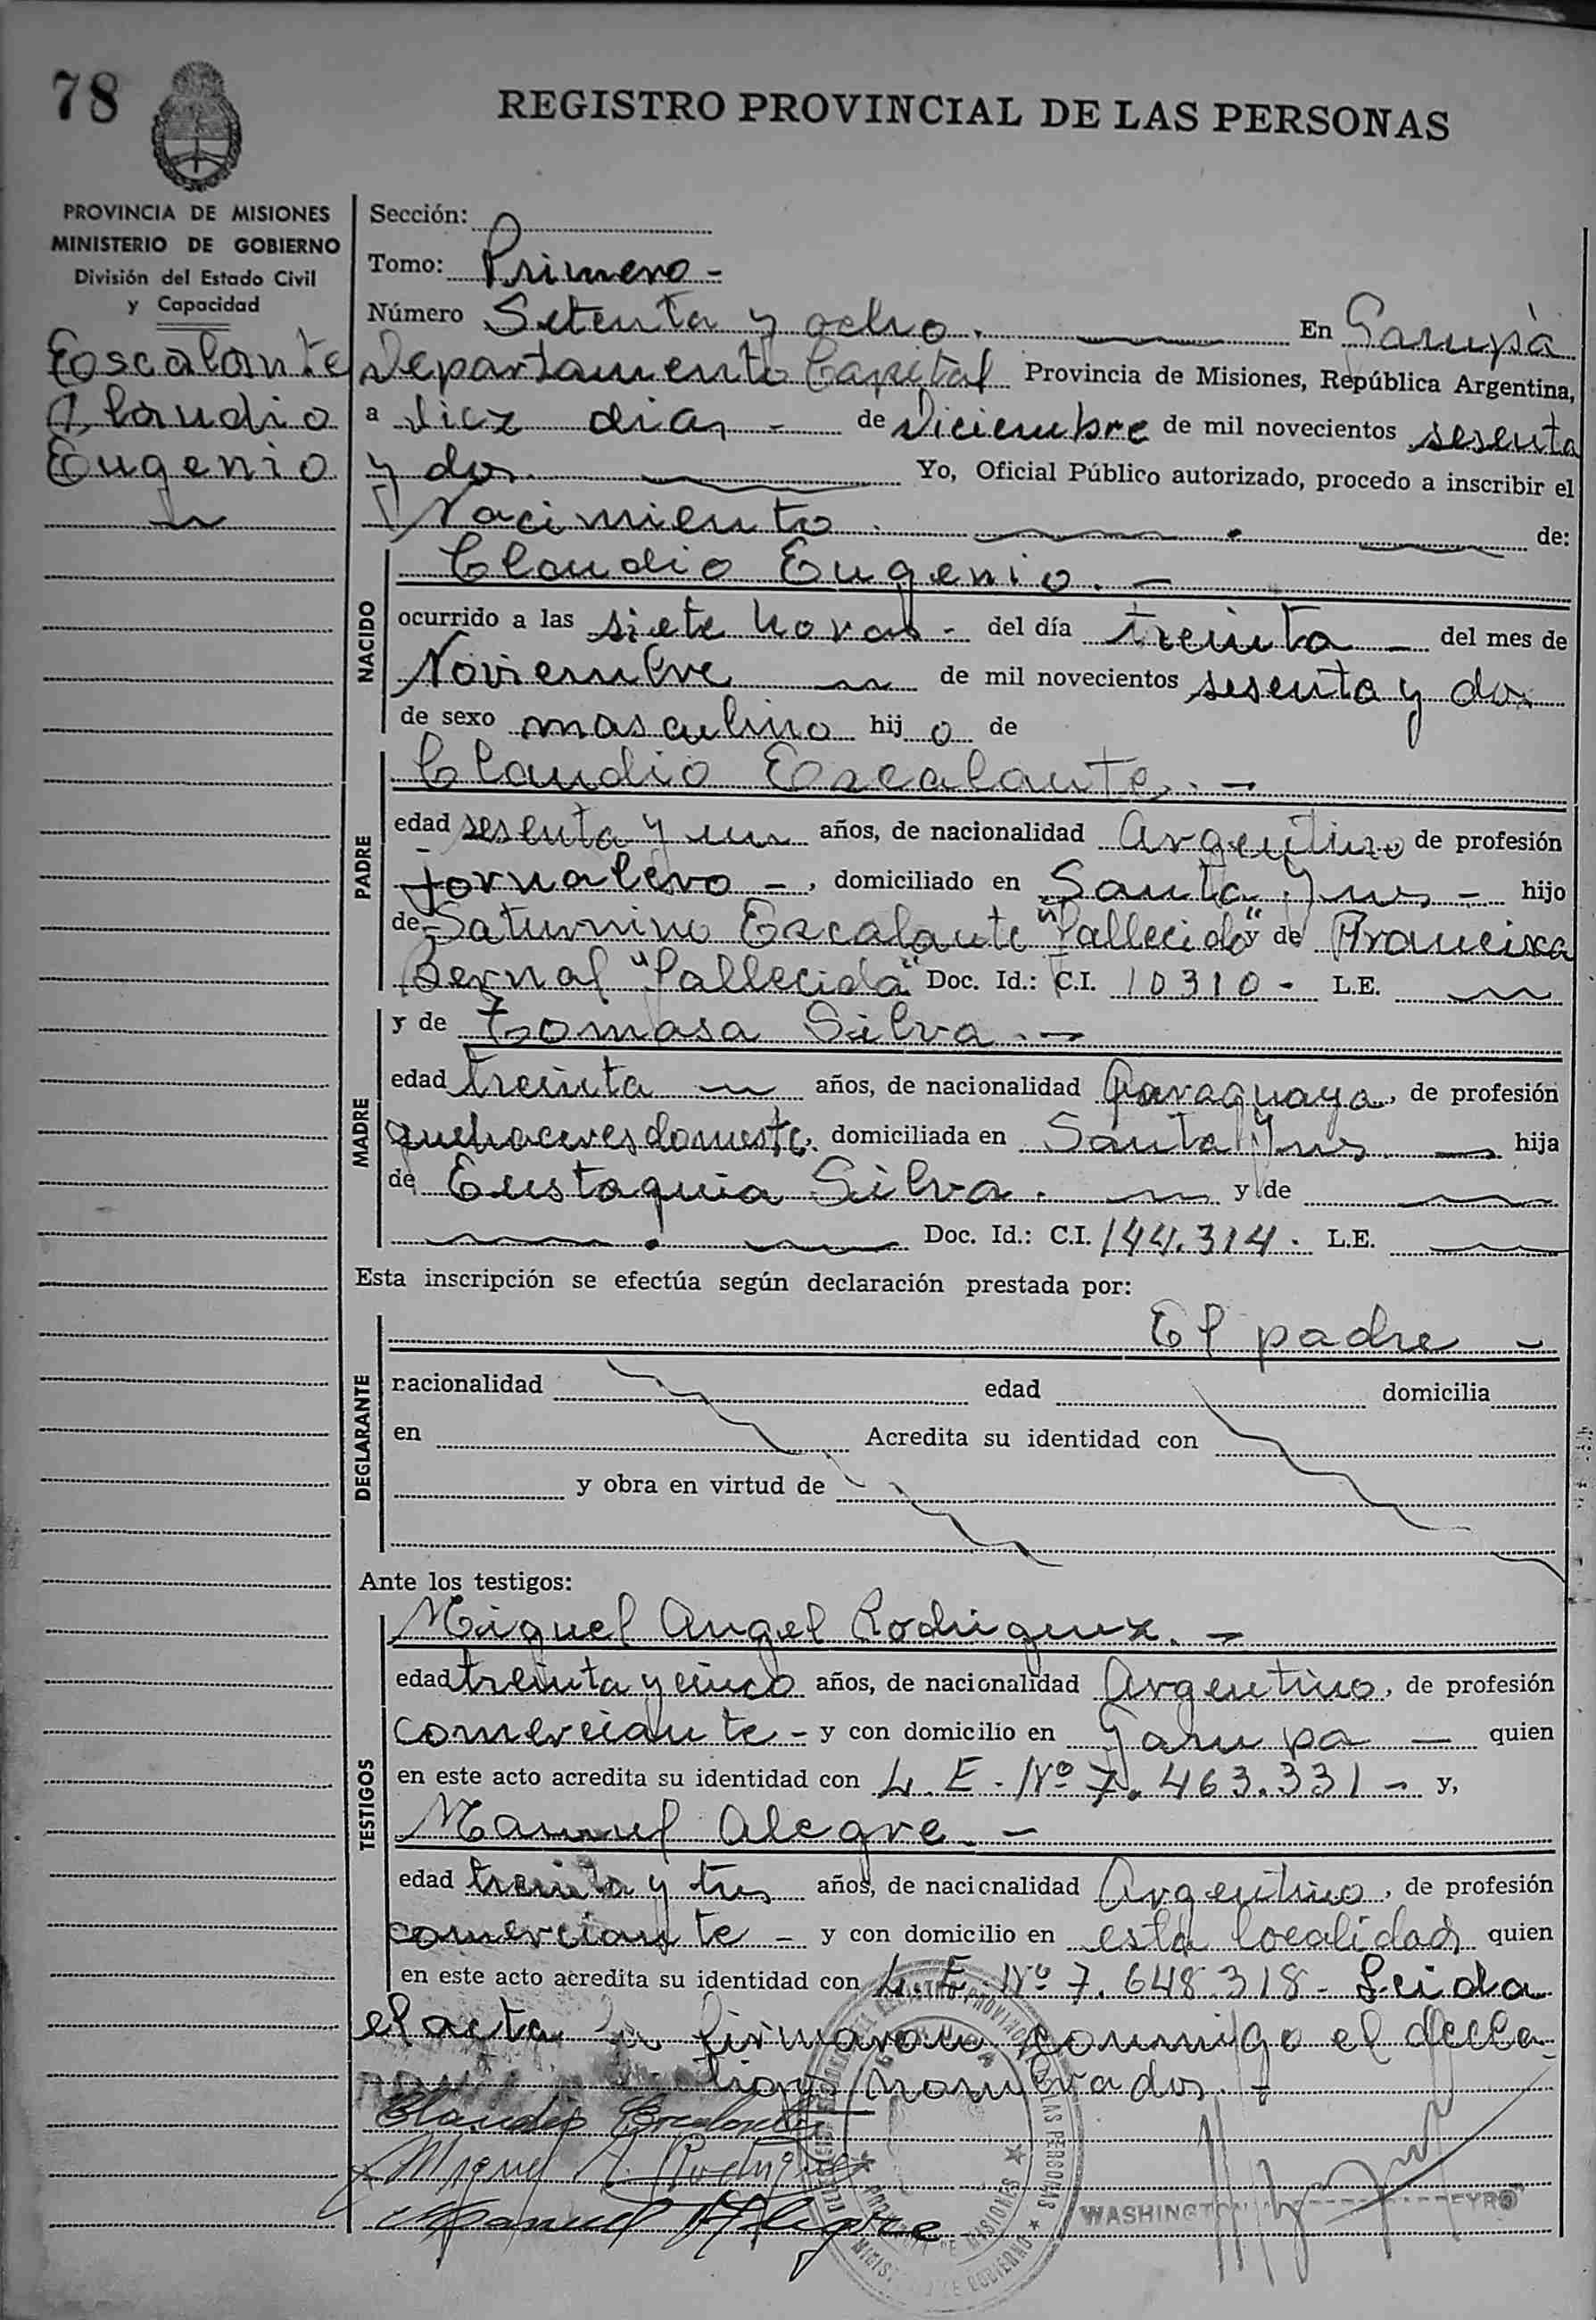 78
REGISTRO PROVINCIAL DE LAS PERSONAS
PROVINCIA DE MISIONES
MINISTERIO DE GOBIERNO
División del Estado Civil
y Capacidad
Escalante
Claudio
Eugenio
Sección:
Tomo: Primero -
Número Setenta y ocho. En Garupá
Departamento Capital Provincia de Misiones, República Argentina,
a diez dias - de Diciembre de mil novecientos sesenta
y dos. Yo, Oficial Público autorizado, procedo a inscribir el
Nacimiento. de:
NACIDO
Claudio Eugenio. -
ocurrido a las siete horas - del día treinta - del mes de
Noviembre de mil novecientos sesenta y dos
de sexo masculino hij o de
PADRE
Claudio Escalante. -
edad sesenta y un años, de nacionalidad Argentino de profesión
Jornalero -, domiciliado en Santa Ines - hijo
de Saturnino Escalante "Fallecido" y de Francisca
Bernal "Fallecida" Doc. Id.: C.I. 10310 - L.E.
MADRE
y de Tomasa Silva. -
edad treinta años, de nacionalidad Paraguaya, de profesión
quehaceres domestc. domiciliada en Santa Ines. - hija
de Eustaquia Silva. y de
Doc. Id.: C.I. 144.314. L.E.
Esta inscripción se efectúa según declaración prestada por:
DEGLARANTE
El padre -
nacionalidad edad domicilia
en Acredita su identidad con
y obra en virtud de
Ante los testigos:
TESTIGOS
Miguel Angel Rodriguez. -
edad treinta y cinco años, de nacionalidad Argentino, de profesión
comerciante - y con domicilio en Garupa - quien
en este acto acredita su identidad con L. E. Nº 7. 463.331 - y,
Manuel Alegre. -
edad treinta y tres años, de nacionalidad Argentino, de profesión
comerciante - y con domicilio en esta localidad quien
en este acto acredita su identidad con L. E. Nº 7. 648.318 - Leida
el acta la firmaron conmigo el decla-
nombrados. -
Claudio Escalante
Miguel A. Rodriguez
Manuel Alegre
WASHINGTON